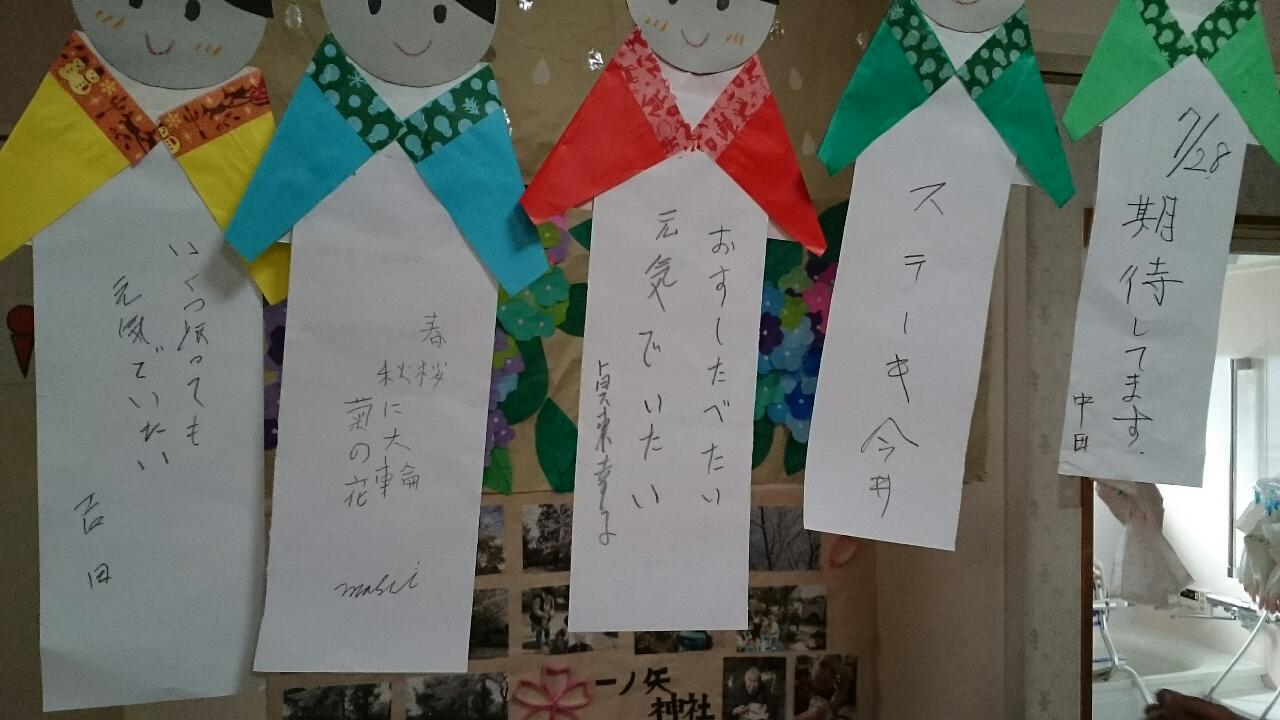 7/28
期待してます。
中田
ステーキ 今井
おすしたべたい
元気でいたい
春桜
秋に大輪
菊の花
いくつ成っても
元気でいたい
吉田
一ノ矢
神社